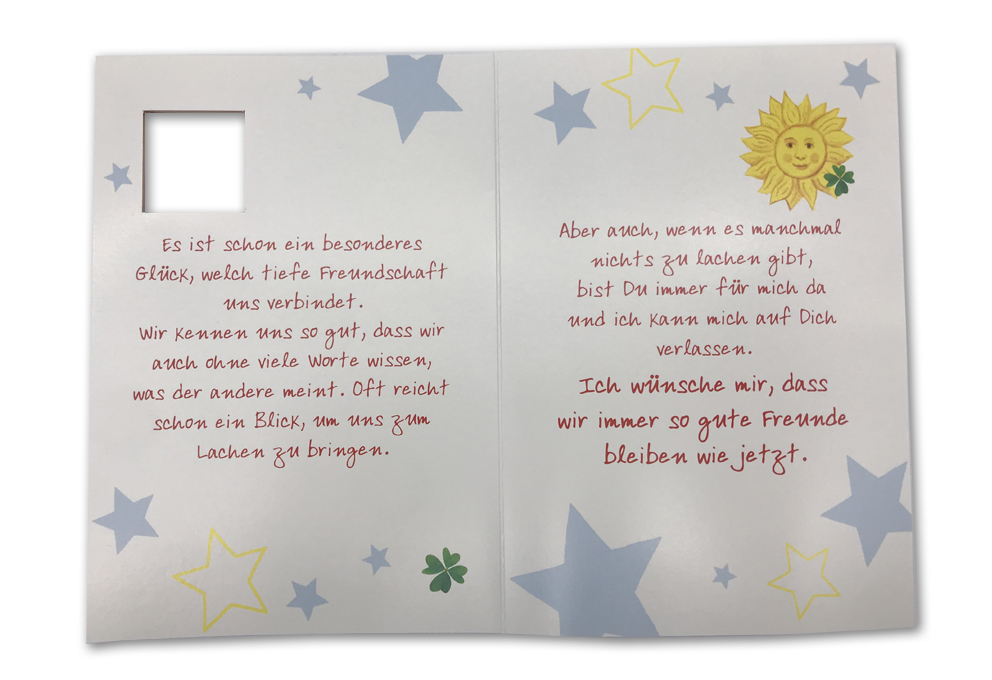 Es ist schon ein besonderes
Glück, welch tiefe Freundschaft
uns verbindet.
Wir kennen uns so gut, dass wir
auch ohne viele Worte wissen,
was der andere meint. Oft reicht
schon ein Blick, um uns zum
Lachen zu bringen.
Aber auch, wenn es manchmal
nichts zu lachen gibt,
bist Du immer für mich da
und ich kann mich auf Dich
verlassen.
Ich wünsche mir, dass
wir immer so gute Freunde
bleiben wie jetzt.